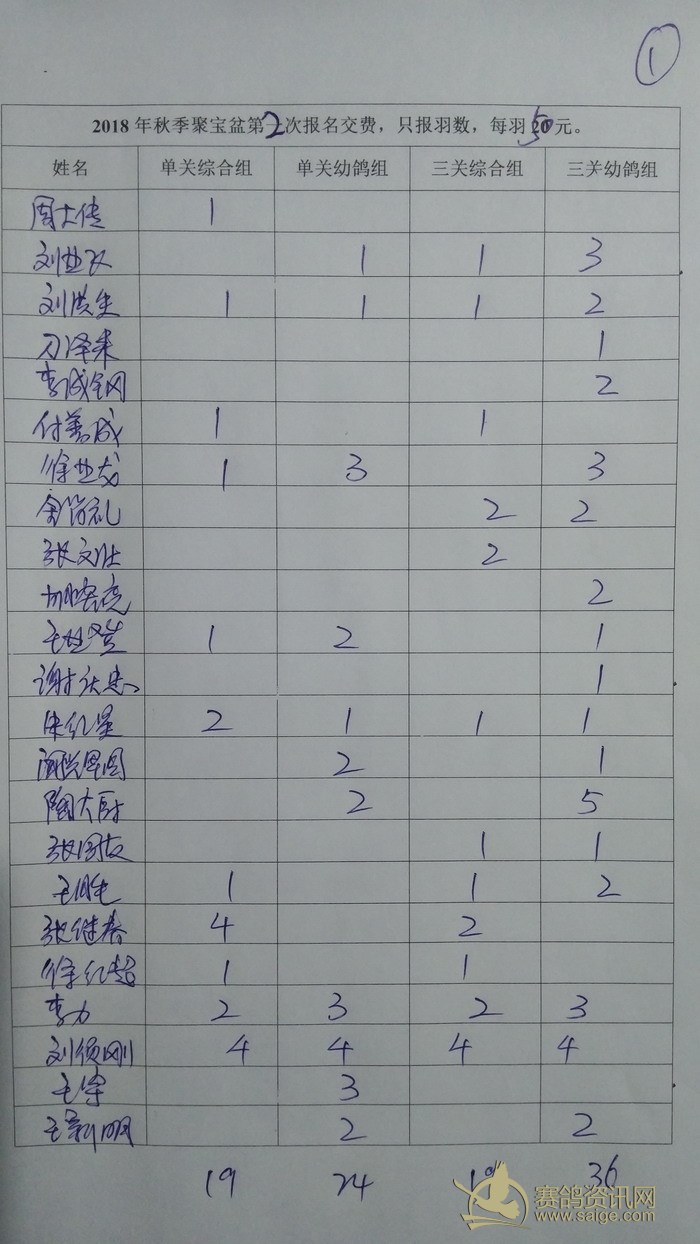 1
2018年秋季聚宝盆第2次报名交费，只报羽数，每羽50元。
姓名 单关综合组 单关幼鸽组 三关综合组 三关幼鸽组
周大传 1
刘业 1 1 3
刘洪生 1 1 1 2
刁泽来 1
李成钢 2
付善成 1 1
徐业龙 1 3 3
礼 2 2
张文壮 2
亮 2
王 1 2 1
谢 忠 1
朱红星 2 1 1 1
2 1
陶大尉 2 5
张国友 1 1
王胜 1 1 2
张继春 4 2
徐红超 1 1
李力 2 3 2 3
刘须刚 4 4 4 4
王宇 3
王新明 2 2
19 24 19 36
赛鸽资讯网
www.saige.com